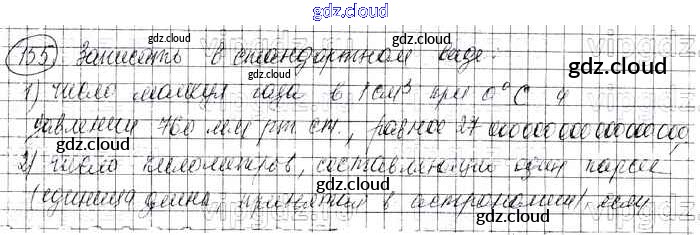 gdz.cloud
155 Записать в стандартном виде:
1) число молекул газа в 1 см³ при 0°С и
давлении 760 мм рт. ст., равное 27 000000000000000000,
2) число километров, составляющих один парсек
(единица длины, принятая в астрономии)
gdz.cloud